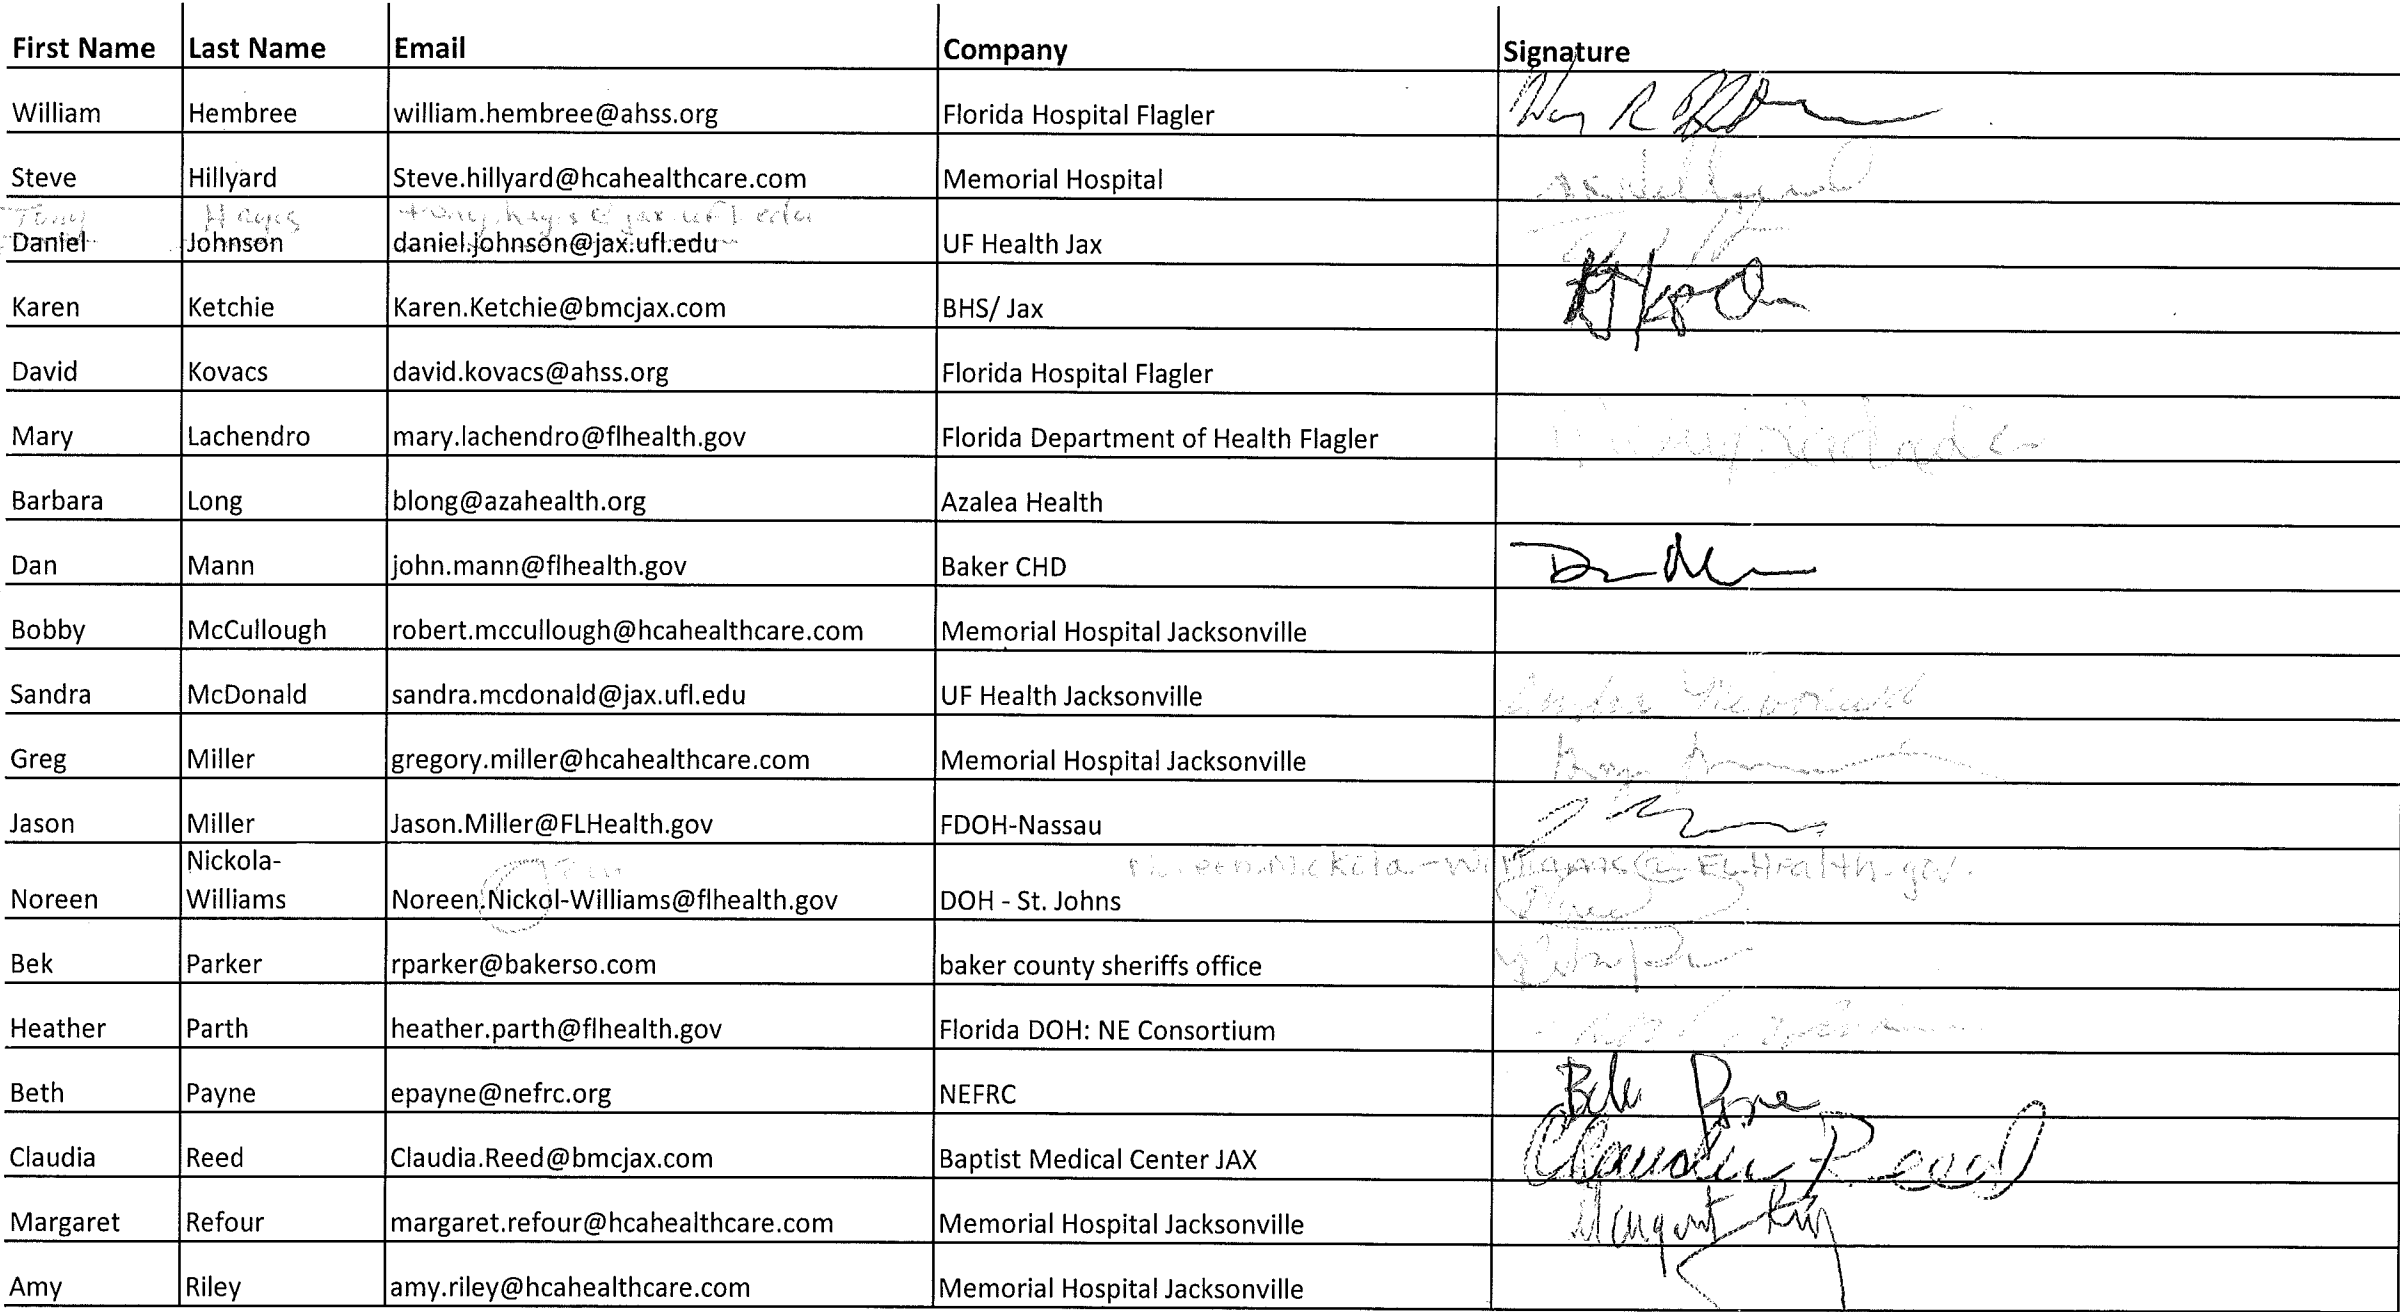 First Name Last Name Email Company Signature
William Hembree william.hembree@ahss.org Florida Hospital Flagler
Steve Hillyard Steve.hillyard@hcahealthcare.com Memorial Hospital
Tony Hayes tony.hayes@jax.ufl.edu
Daniel Johnson daniel.johnson@jax.ufl.edu UF Health Jax
Karen Ketchie Karen.Ketchie@bmcjax.com BHS/ Jax
David Kovacs david.kovacs@ahss.org Florida Hospital Flagler
Mary Lachendro mary.lachendro@flhealth.gov Florida Department of Health Flagler
Barbara Long blong@azahealth.org Azalea Health
Dan Mann john.mann@flhealth.gov Baker CHD
Bobby McCullough robert.mccullough@hcahealthcare.com Memorial Hospital Jacksonville
Sandra McDonald sandra.mcdonald@jax.ufl.edu UF Health Jacksonville
Greg Miller gregory.miller@hcahealthcare.com Memorial Hospital Jacksonville
Jason Miller Jason.Miller@FLHealth.gov FDOH-Nassau
Nickola- Noreen.Nickola-Williams@FLHealth.gov.
Noreen Williams Noreen.Nickol-Williams@flhealth.gov DOH - St. Johns
Bek Parker rparker@bakerso.com baker county sheriffs office
Heather Parth heather.parth@flhealth.gov Florida DOH: NE Consortium
Beth Payne epayne@nefrc.org NEFRC
Claudia Reed Claudia.Reed@bmcjax.com Baptist Medical Center JAX Claudia Reed
Margaret Refour margaret.refour@hcahealthcare.com Memorial Hospital Jacksonville
Amy Riley amy.riley@hcahealthcare.com Memorial Hospital Jacksonville